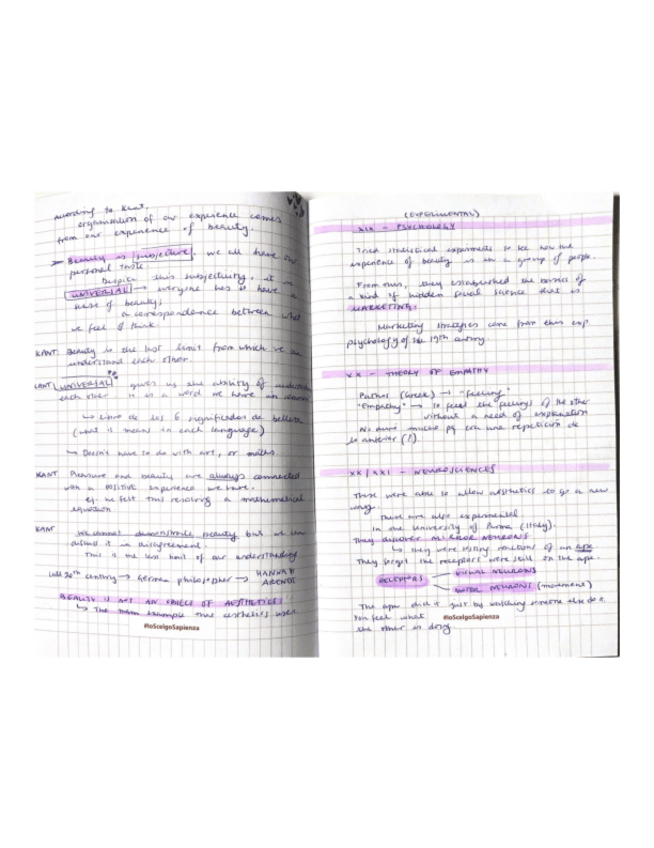 According to Kant,
organisation of our experience comes
from our experience of beauty.
Beauty is subjective, we all have our
personal taste
Despite this subjectivity, it is
UNIVERSAL → everyone has to have a
sense of beauty;
a correspondence between what
we feel & think.
KANT: Beauty is the last limit from which we can
understand each other.
KANT UNIVERSAL gives us the ability of understand
each other it is a word we have an
↳ Libro de los 6 significados de belleza
(what it means in each language)
↳ Doesn't have to do with art, or maths.
KANT: Pleasure and beauty are always connected
with a positive experience we have.
eg. he felt this resolving a mathematical
equation
KANT we cannot demonstrate beauty but we can
discuss it in disagreement.
This is the last limit of our understanding
20th century → German philosopher → HANNAH
ARENDT
BEAUTY IS NOT AN OBJECT OF AESTHETICS!
↳ The main example that aesthetics uses.
#IoScelgoSapienza
(EXPERIMENTAL)
XIX - PSYCHOLOGY
Tried statistical experiments to see how the
experience of beauty is in a group of people.
From this, they established the basics of
a kind of hidden social science that is
MARKETING.
Marketing strategies come from this exp.
psychology of the 19th century.
XX - THEORY OF EMPATHY
Pathos (Greek) → "feeling"
"Empathy" → to feel the feelings of the other
without a need of explanation
No duró mucho pq era una repetición de
lo anterior (?).
XX/XXI - NEUROSCIENCES
These were able to allow aesthetics to go a new
way.
These are also experimental.
In the University of Parma (Italy).
They discover MIRROR NEURONS
↳ they were using reactions of an ape
They forgot the receptors were still on the ape.
RECEPTORS
VISUAL NEURONS
MOTOR NEURONS (movement)
The ape did it just by watching someone else do it.
You feel what
the other is doing
#IoScelgoSapienza